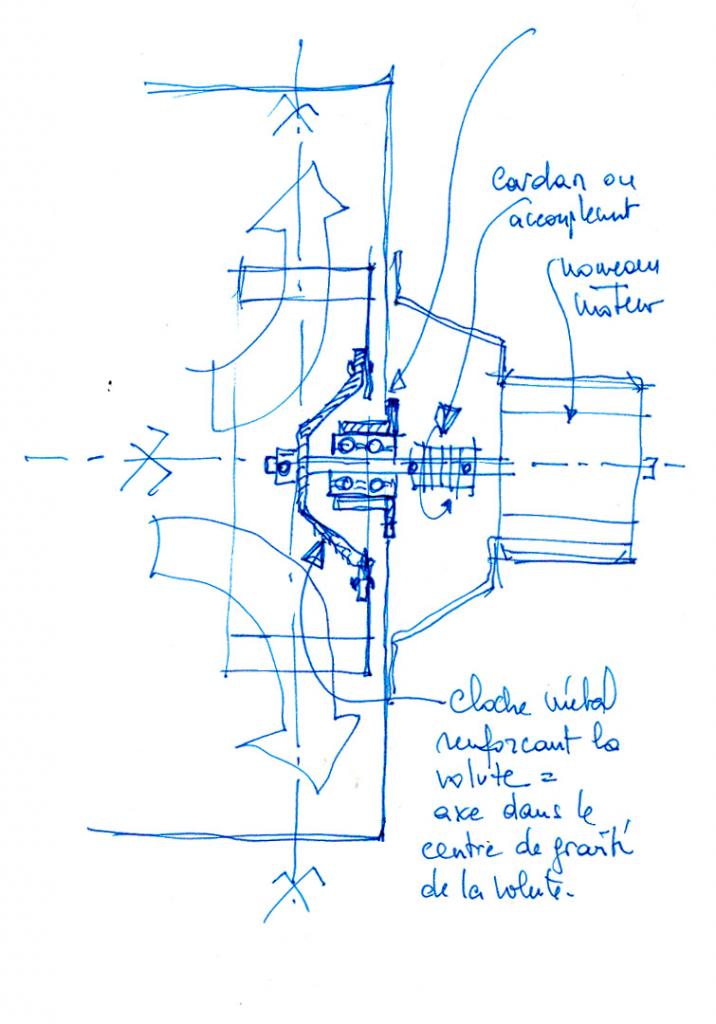 Cardan ou
accouplement
nouveau
moteur
cloche métal
renforcant la
volute =
axe dans le
centre de gravité
de la volute.